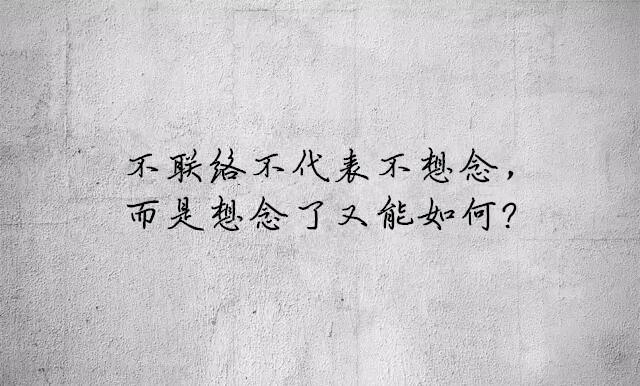 不联络不代表不想念，
而是想念了又能如何?